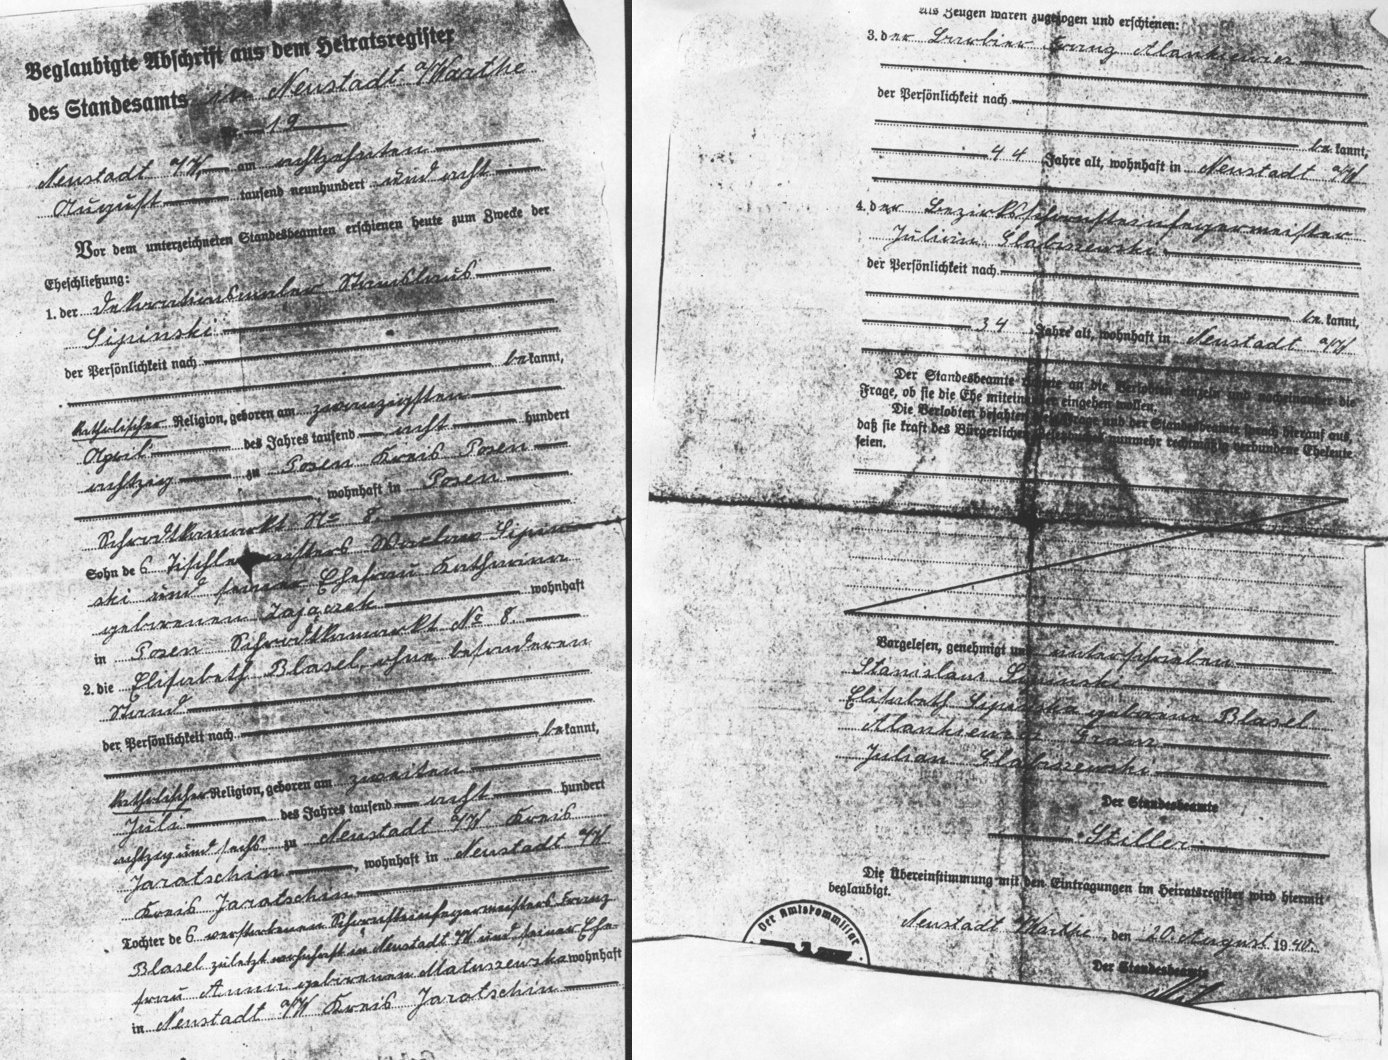 Beglaubigte Abschrift aus dem Heiratsregister
des Standesamts Neustadt a/Warthe
Nr. 19
Neustadt a/W, am achtzehnten
August tausend neunhundert und acht
Vor dem unterzeichneten Standesbeamten erschienen heute zum Zwecke der
Eheschließung:
1. der Dekorationsmaler Stanislaus
Lipinski
der Persönlichkeit nach
be kannt,
katholischer Religion, geboren am zwanzigsten
April des Jahres tausend acht hundert
achtzig zu Posen Kreis Posen
, wohnhaft in Posen
Schrodkamarkt No 8.
Sohn des Tischlermeisters Waclaw Lipin
ski und seiner Ehefrau Katharina
geborenen Zajączek wohnhaft
in Posen Schrodkamarkt No 8.
2. die Elisabeth Blasel, ohne besonderen
Stand
der Persönlichkeit nach
be kannt,
katholischer Religion, geboren am zweiten
Juli des Jahres tausend acht hundert
achtzig und sechs zu Neustadt a/W Kreis
Jarotschin, wohnhaft in Neustadt a/W
Kreis Jarotschin
Tochter des verstorbenen Schornsteinfegermeisters Franz
Blasel zuletzt wohnhaft in Neustadt a/W und seiner Ehe-
frau Anna geborenen Matuszewska wohnhaft
in Neustadt a/W Kreis Jarotschin
Als Zeugen waren zugezogen und erschienen:
3. der Barbier Franz Mankiewicz
der Persönlichkeit nach
be kannt,
44 Jahre alt, wohnhaft in Neustadt a/W
4. der Bezirksschornsteinfegermeister
Julian Slabuszewski
der Persönlichkeit nach
be kannt,
34 Jahre alt, wohnhaft in Neustadt a/W
Der Standesbeamte richtete an die Verlobten einzeln und nacheinander die
Frage, ob sie die Ehe miteinander eingehen wollen.
Die Verlobten bejahten diese Frage und der Standesbeamte sprach hierauf aus,
daß sie kraft des Bürgerlichen Gesetzbuches nunmehr rechtmäßig verbundene Eheleute
seien.
Vorgelesen, genehmigt und unterschrieben
Stanislaus Lipinski
Elisabeth Lipinska geborene Blasel
Mankiewicz Franz
Julian Slabuszewski
Der Standesbeamte
Stiller
Die Übereinstimmung mit den Eintragungen im Heiratsregister wird hiermit
beglaubigt.
Der Amtskommissar
Neustadt a/Warthe, den 20. August 1940.
Der Standesbeamte